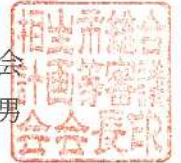 会
男
市総合
計画等審議
会会長印